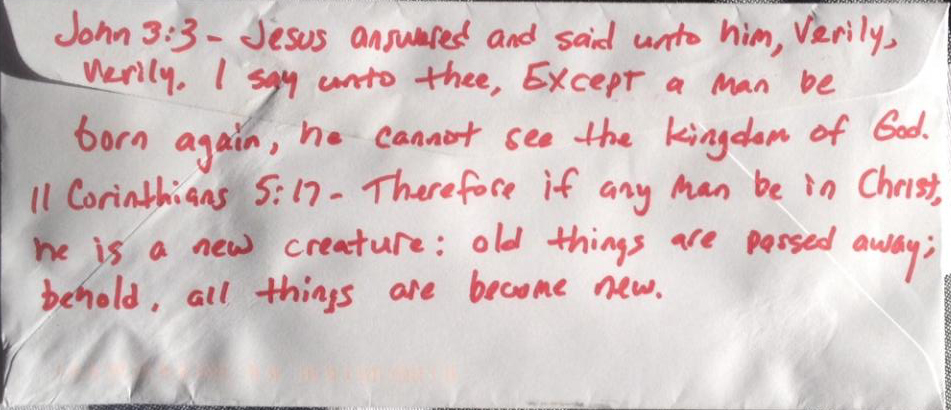 John 3:3 - Jesus answered and said unto him, Verily,
verily, I say unto thee, Except a man be
born again, he cannot see the kingdom of God.
II Corinthians 5:17 - Therefore if any man be in Christ,
he is a new creature: old things are passed away;
behold, all things are become new.